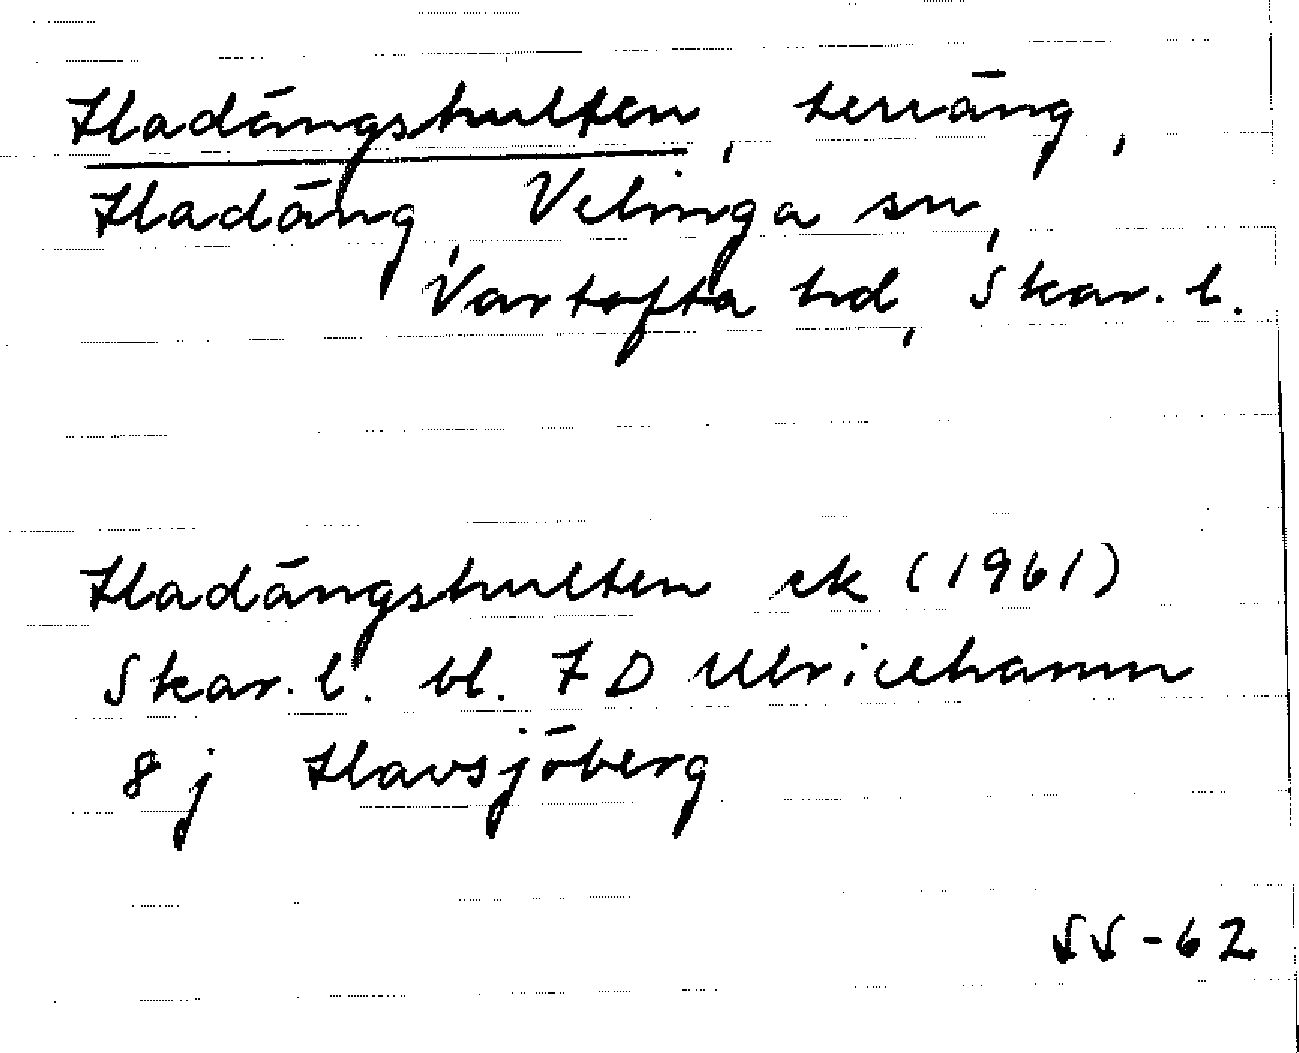 Hadängshulten, terräng,
Hadäng, Velinga sn,
Vartofta hd, Skar. l.
Hadängshulten ek (1961)
Skar. l. bl. 7 D Ulricehamn
8 j Havsjöberg
SS-62